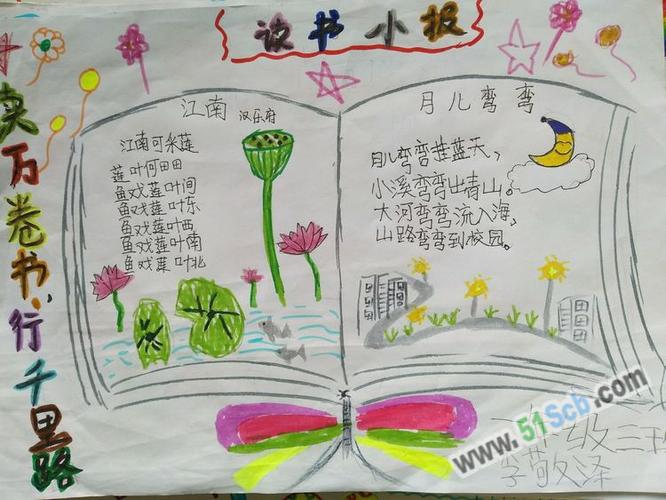 读书小报
卖万卷书,行千里路
江南 汉乐府
江南可采莲
莲叶何田田
鱼戏莲叶间
鱼戏莲叶东
鱼戏莲叶西
鱼戏莲叶南
鱼戏莲叶北
月儿弯弯
月儿弯弯挂蓝天,
小溪弯弯出青山。
大河弯弯流入海,
山路弯弯到校园。
级三班
李敬泽
www.51Scb.com